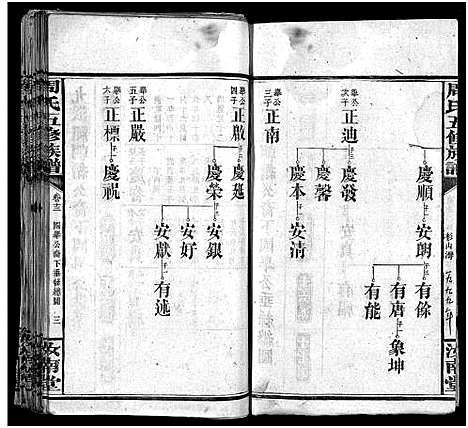 周氏五修族譜
杉山灣
汝南堂
慶順
安朗
有餘
有唐
象坤
有能
舉公
次子
正迪
慶發
慶馨
慶本
安清
舉公
三子
正南
舉公
四子
正啟
慶遠
慶榮
安銀
安好
安獻
有述
舉公
五子
正嚴
舉公
六子
正標
慶祝
周氏五修族譜
卷十三
四舉公裔下垂絲總圖
三
汝南堂